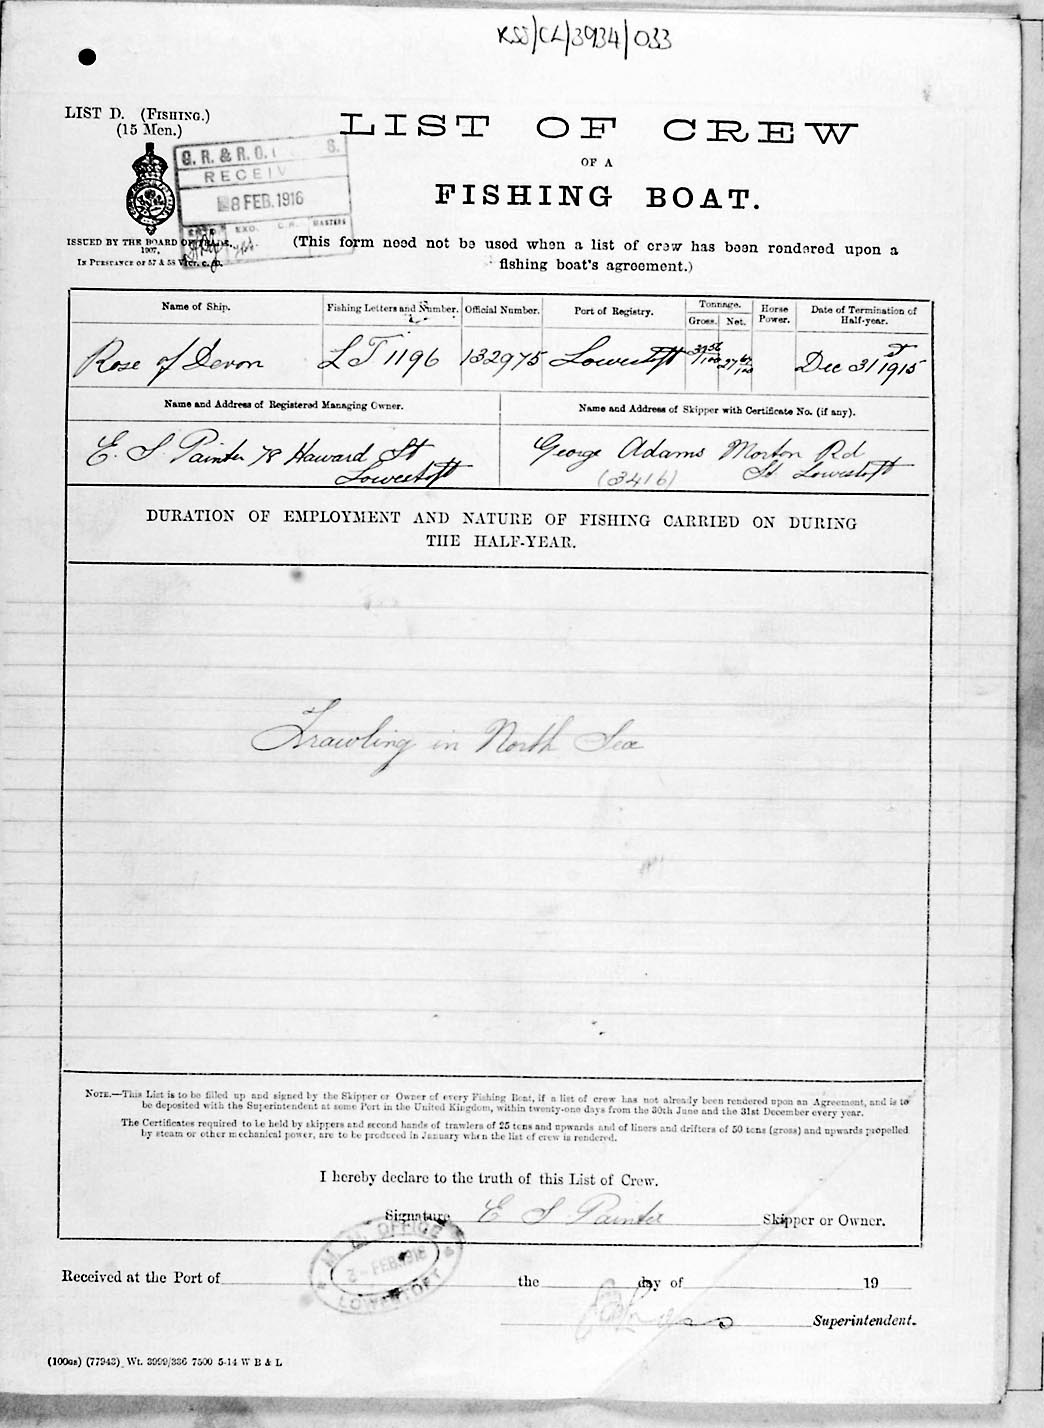 RSS/CL/3934/033
LIST D. (FISHING.)
(15 Men.)
LIST OF CREW
OF A
FISHING BOAT.
G. R. & R. O. S.
RECEIV
8 FEB. 1916
EXO. MASTERS
ISSUED BY THE BOARD OF TRADE,
1907,
IN PURSUANCE OF 57 & 58 VICT. C. 60.
(This form need not be used when a list of crew has been rendered upon a
fishing boat's agreement.)
Name of Ship. Fishing Letters and Number. Official Number. Port of Registry. Tonnage. Gross. Net. Horse Power. Date of Termination of Half-year.
Rose of Devon LT 1196 132975 Lowestoft 39 56/100 27 67/100 Dec 31st 1915
Name and Address of Registered Managing Owner. Name and Address of Skipper with Certificate No. (if any).
E. S Painter 78 Haward St George Adams Morton Rd
Lowestoft (3416) St Lowestoft
DURATION OF EMPLOYMENT AND NATURE OF FISHING CARRIED ON DURING
THE HALF-YEAR.
Trawling in North Sea
NOTE.—This List is to be filled up and signed by the Skipper or Owner of every Fishing Boat, if a list of crew has not already been rendered upon an Agreement, and is to
be deposited with the Superintendent at some Port in the United Kingdom, within twenty-one days from the 30th June and the 31st December every year.
The Certificates required to be held by skippers and second hands of trawlers of 25 tons and upwards and of liners and drifters of 50 tons (gross) and upwards propelled
by steam or other mechanical power, are to be produced in January when the list of crew is rendered.
I hereby declare to the truth of this List of Crew.
Signature E S Painter Skipper or Owner.
M. M. OFFICE
2 - FEB. 1916
LOWESTOFT
Received at the Port of the day of 19
Superintendent.
(100GS) (77943) Wt. 3999/336 7500 5-14 W B & L